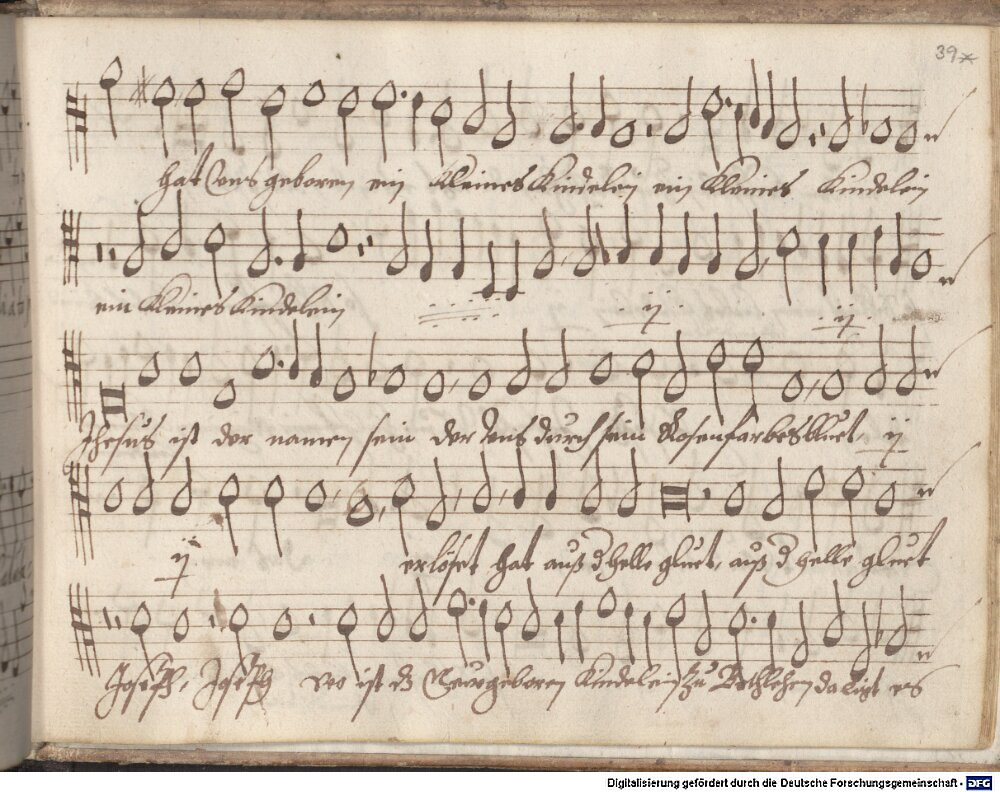 39
hat Uns geboren ein Kleines Kindelein ein Kleines Kindelein
ein Kleines Kindelein ij ij
Jhesus ist der namen sein der Uns durch sein Rosenfarbes bluet, ij
ij erlöset hat auß d helle gluet, auß d helle gluet
Joseph, Joseph wo ist dz Neugeboren Kindelein zu Bethlehem da ligt es
Digitalisierung gefördert durch die Deutsche Forschungsgemeinschaft - DFG